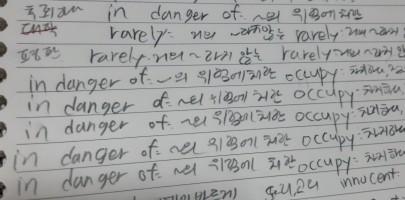 in danger of: ~의 위험에 처한
rarely: 거의 ~하지 않는 rarely: 거의 ~하지 않
rarely: 거의 ~하지 않는 rarely: 거의 ~하지 않
in danger of: ~의 위험에 처한 occupy: 차지하다,
in danger of: ~의 위험에 처한 occupy: 차지하다,
in danger of: ~의 위험에 처한 occupy: 차지하다,
in danger of: ~의 위험에 처한 occupy: 차지하다
in danger of: ~의 위험에 처한 occupy: 차지하다
innocent